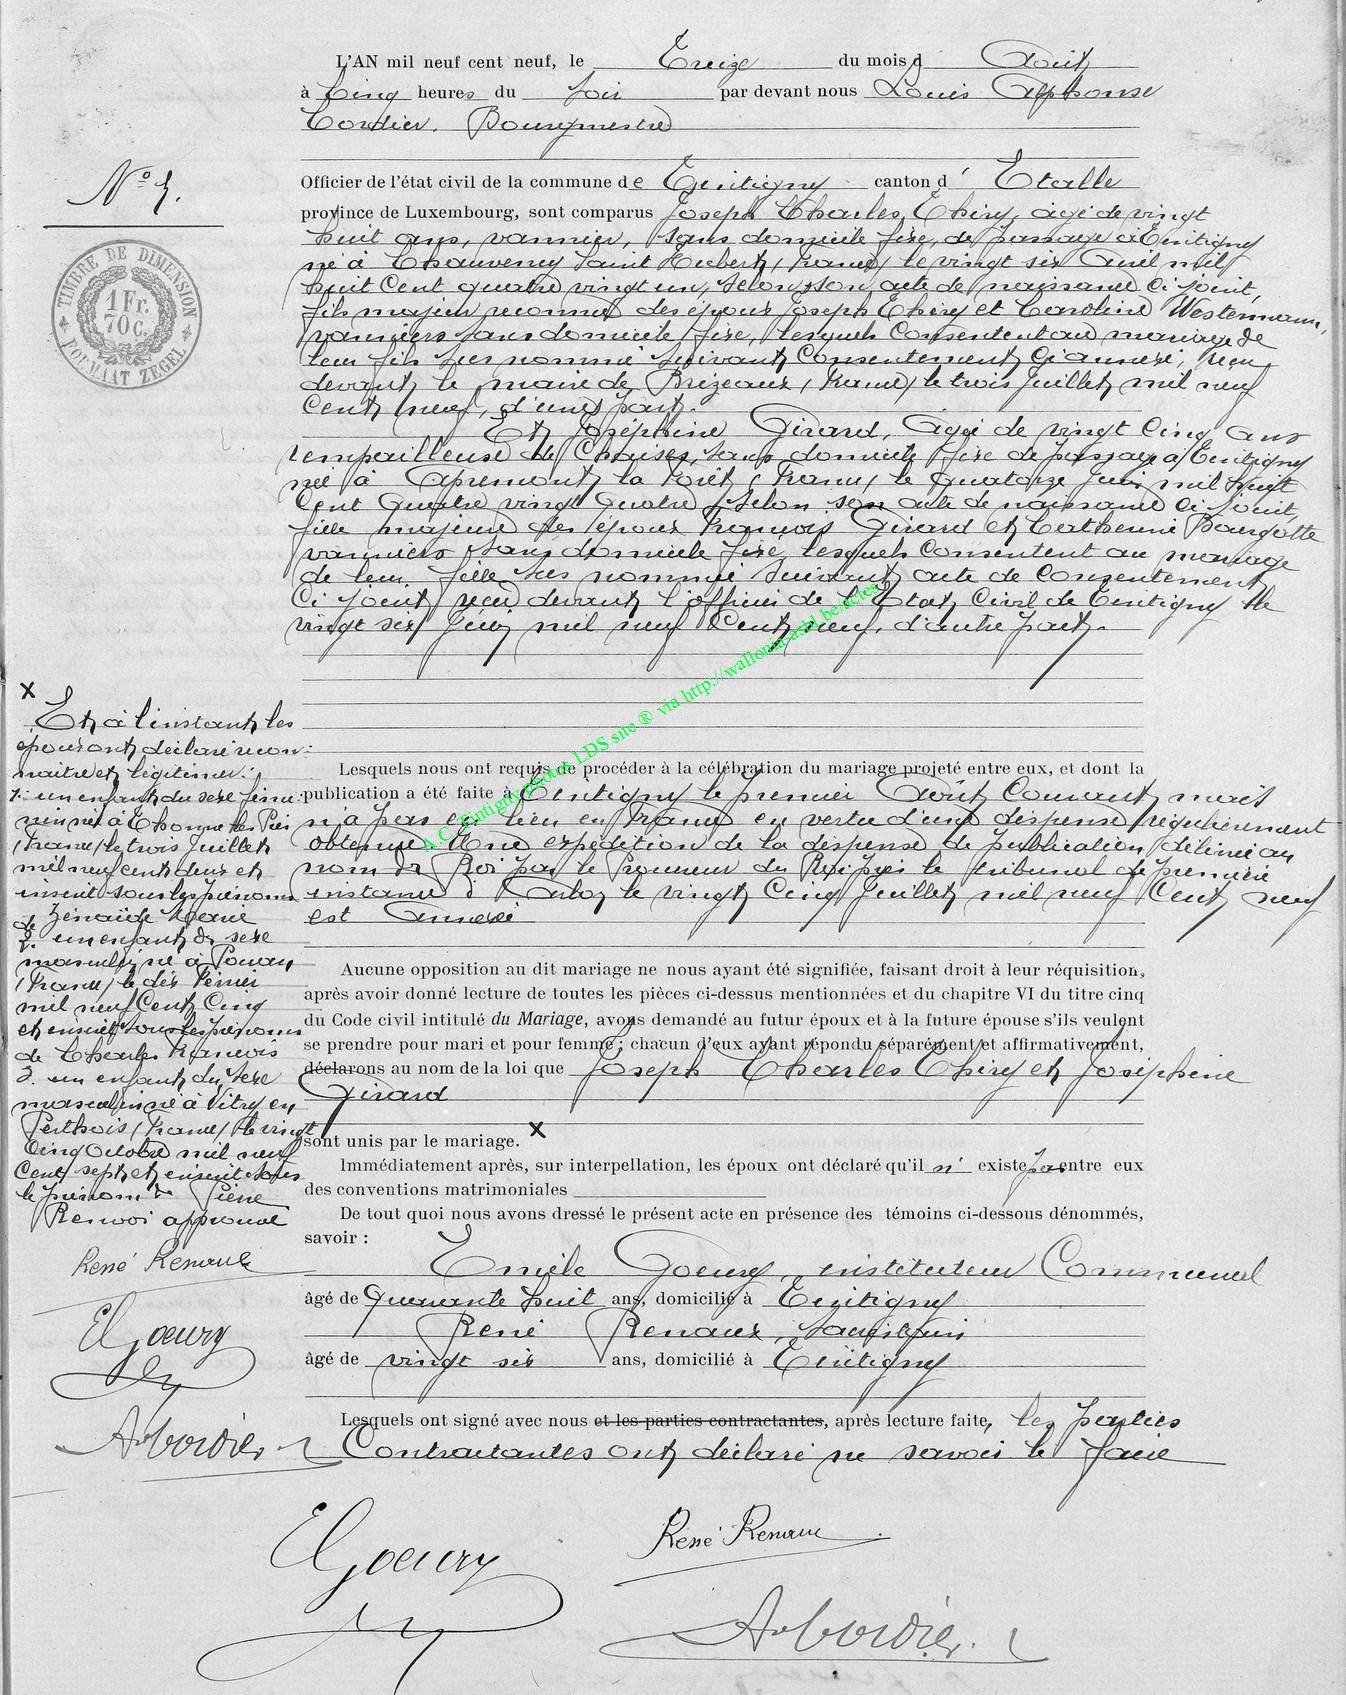 L'AN mil neuf cent neuf, le Treize du mois d Août
à Cinq heures du soir par devant nous Louis Alphonse
Cordier, Bourgmestre
Officier de l'état civil de la commune de Tintigny canton d' Etalle
province de Luxembourg, sont comparus Joseph Charles Thiry, âgé de vingt
huit ans, vannier, sans domicile fixe, de passage à Tintigny
né à Chauvency Saint Hubert, (France) le vingt six Avril mil
huit Cent quatre vingt un, selon son acte de naissance ci joint,
fils majeur reconnu des époux Joseph Thiry et Caroline Westermann,
vanniers sans domicile fixe, lesquels Consentent au mariage de
leur fils sus nommé suivant Consentement ci annexé, reçu
devant le maire de Brizeaux, (France) le trois Juillet mil neuf
Cent neuf, d'une part.
Et Joséphine Girard, âgée de vingt Cinq ans
rempailleuse de Chaises, sans domicile fixe de passage à Tintigny
née à Apremont la Forêt, (France) le quatorze Juin mil huit
Cent quatre vingt quatre, selon son acte de naissance ci joint,
fille majeure des époux François Girard et Catherine Bourgotte
vanniers sans domicile fixe, lesquels Consentent au mariage
de leur fille sus nommée suivant acte de Consentement
ci joint reçu devant l'officier de l'Etat Civil de Tintigny le
vingt six Juin mil neuf Cent neuf, d'autre part.
Lesquels nous ont requis de procéder à la célébration du mariage projeté entre eux, et dont la
publication a été faite à Tintigny le premier Août Courant, mais
n'a pas eu lieu en France en vertu d'une dispense régulièrement
obtenue. Une expédition de la dispense de publication délivrée au
nom du Roi par le Procureur du Roi près le tribunal de première
instance d'Arlon le vingt Cinq Juillet mil neuf Cent neuf
est annexée
Aucune opposition au dit mariage ne nous ayant été signifiée, faisant droit à leur réquisition,
après avoir donné lecture de toutes les pièces ci-dessus mentionnées et du chapitre VI du titre cinq
du Code civil intitulé du Mariage, avons demandé au futur époux et à la future épouse s'ils veulent
se prendre pour mari et pour femme ; chacun d'eux ayant répondu séparément et affirmativement,
déclarons au nom de la loi que Joseph Charles Thiry et Joséphine
Girard
sont unis par le mariage. X
Immédiatement après, sur interpellation, les époux ont déclaré qu'il n' existe pas entre eux
des conventions matrimoniales
De tout quoi nous avons dressé le présent acte en présence des témoins ci-dessous dénommés,
savoir :
Emile Goeury, instituteur Communal
âgé de Quarante huit ans, domicilié à Tintigny
René Renaux, sacristain
âgé de vingt six ans, domicilié à Tintigny
Lesquels ont signé avec nous et les parties contractantes, après lecture faite, les parties
Contractantes ont déclaré ne savoir le faire
EGoeury
René Renaux
A Cordier
N° 5.
TIMBRE DE DIMENSION
1 Fr.
70 c.
FORMAAT ZEGEL
X
Et à l'instant les
époux ont déclaré recon-
naître et légitimer:
1. un enfant du sexe fémi-
nin né à Thonne les Prés
(France) le trois Juillet
mil neuf cent deux et
inscrit sous les prénoms
de Zénaïde Marie
2. un enfant du sexe
masculin né à Pouan
(France) le dix Février
mil neuf Cent Cinq
et inscrit sous les prénoms
de Charles François
3. un enfant du sexe
masculin né à Vitry en
Perthois (France) le vingt
Cinq Octobre mil neuf
Cent sept et inscrit sous
le prénom de Pierre
Renvoi approuvé
René Renaux
EGoeury
A Cordier
A.C. Tintigny photos LDS site ® via http://wallonia-asbl.be/actes